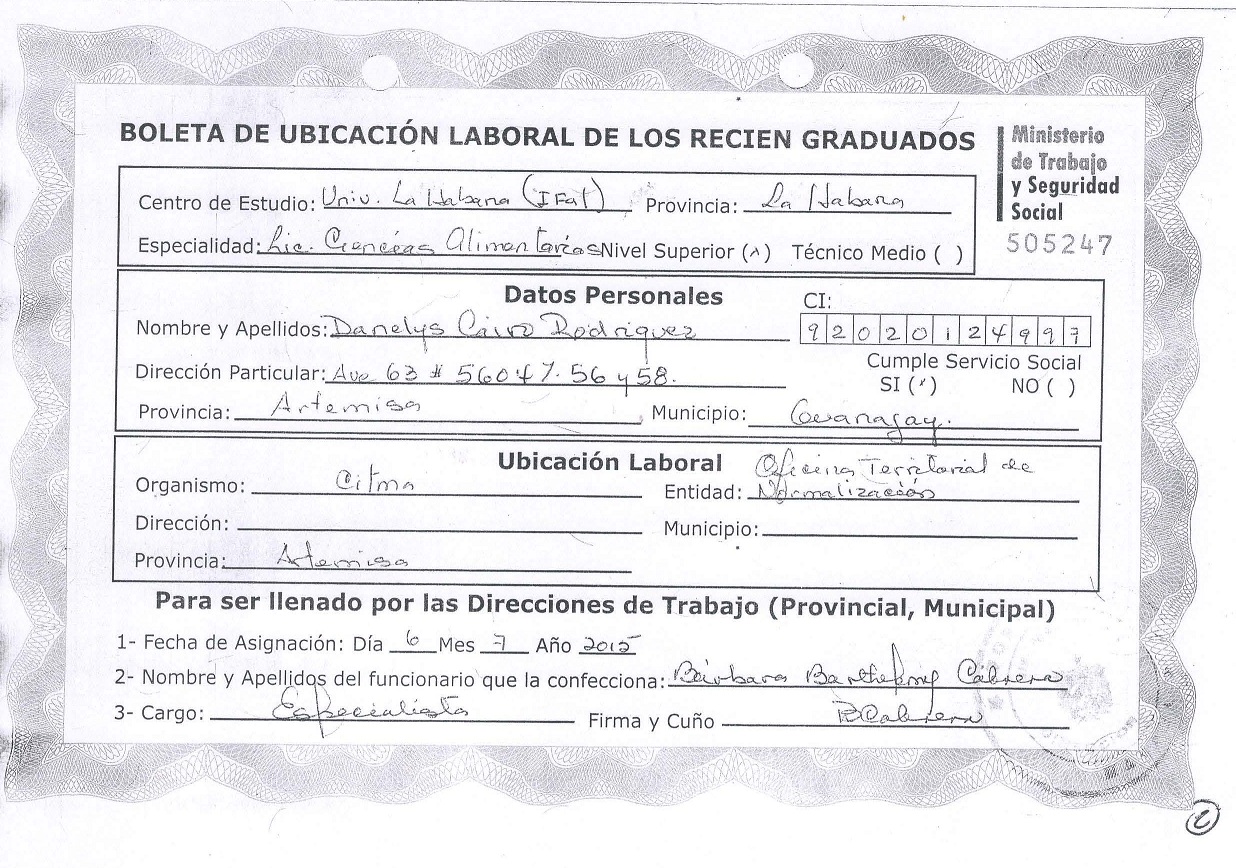 BOLETA DE UBICACIÓN LABORAL DE LOS RECIEN GRADUADOS
Ministerio
de Trabajo
y Seguridad
Social
505247
Centro de Estudio: Univ. La Habana (IFal) Provincia: La Habana
Especialidad: Lic. Ciencias Alimentarias Nivel Superior (^) Técnico Medio ( )
Datos Personales
CI:
Nombre y Apellidos: Danelys Cairo Rodriguez 92020124997
Cumple Servicio Social
Dirección Particular: Ave 63 # 5604 /. 56 y 58. SI (ˣ) NO ( )
Provincia: Artemisa Municipio: Guanajay.
Ubicación Laboral
Organismo: Citma Entidad: Oficina Territorial de
Normalización
Dirección: Municipio:
Provincia: Artemisa
Para ser llenado por las Direcciones de Trabajo (Provincial, Municipal)
1- Fecha de Asignación: Día 6 Mes 7 Año 2015
2- Nombre y Apellidos del funcionario que la confecciona: Bárbara Cabrera
3- Cargo: Especialista Firma y Cuño BCabrera
2